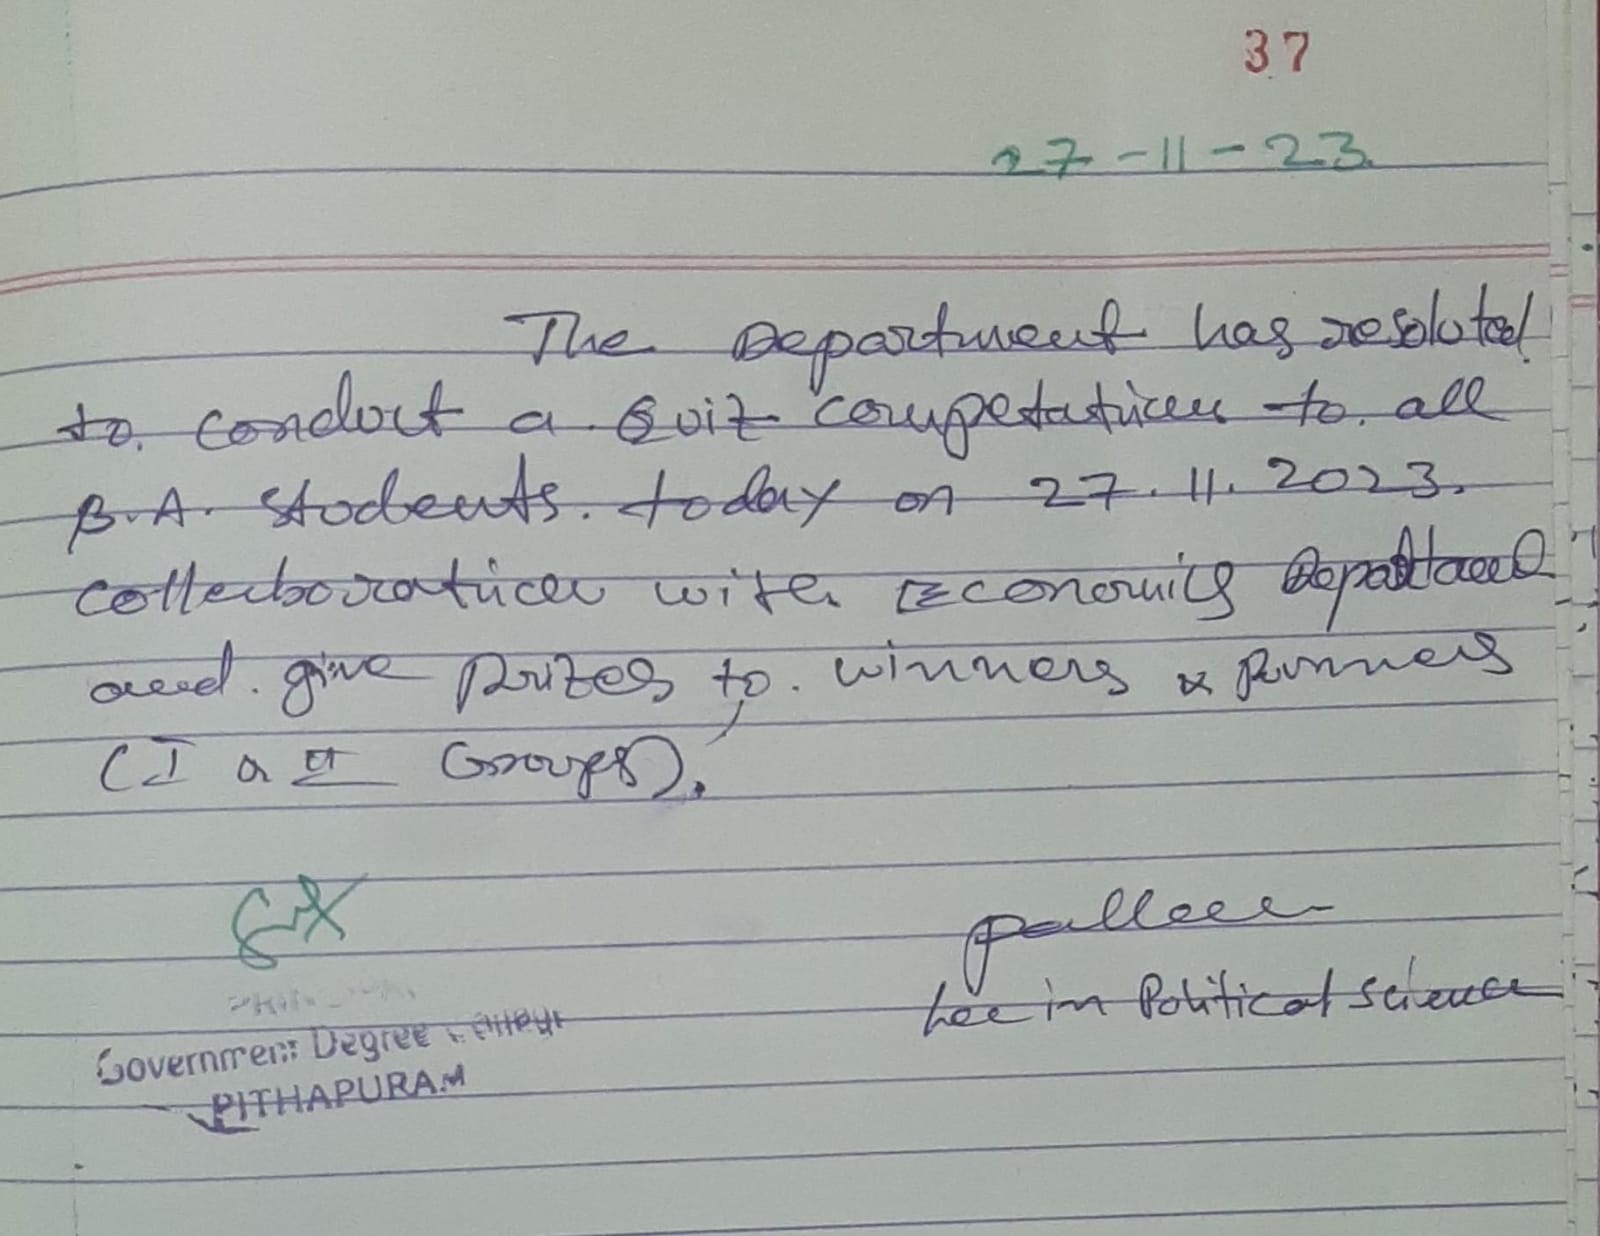 37
27-11-23.
The Department has resoluted
to. conduct a Quiz competation to. all
B.A. Students. today on 27.11.2023.
collectboration with Economics Department
and. give prizes to. winners & Runners
(I & II Groups).
Lec in Political Science
Government Degree College
PITHAPURAM